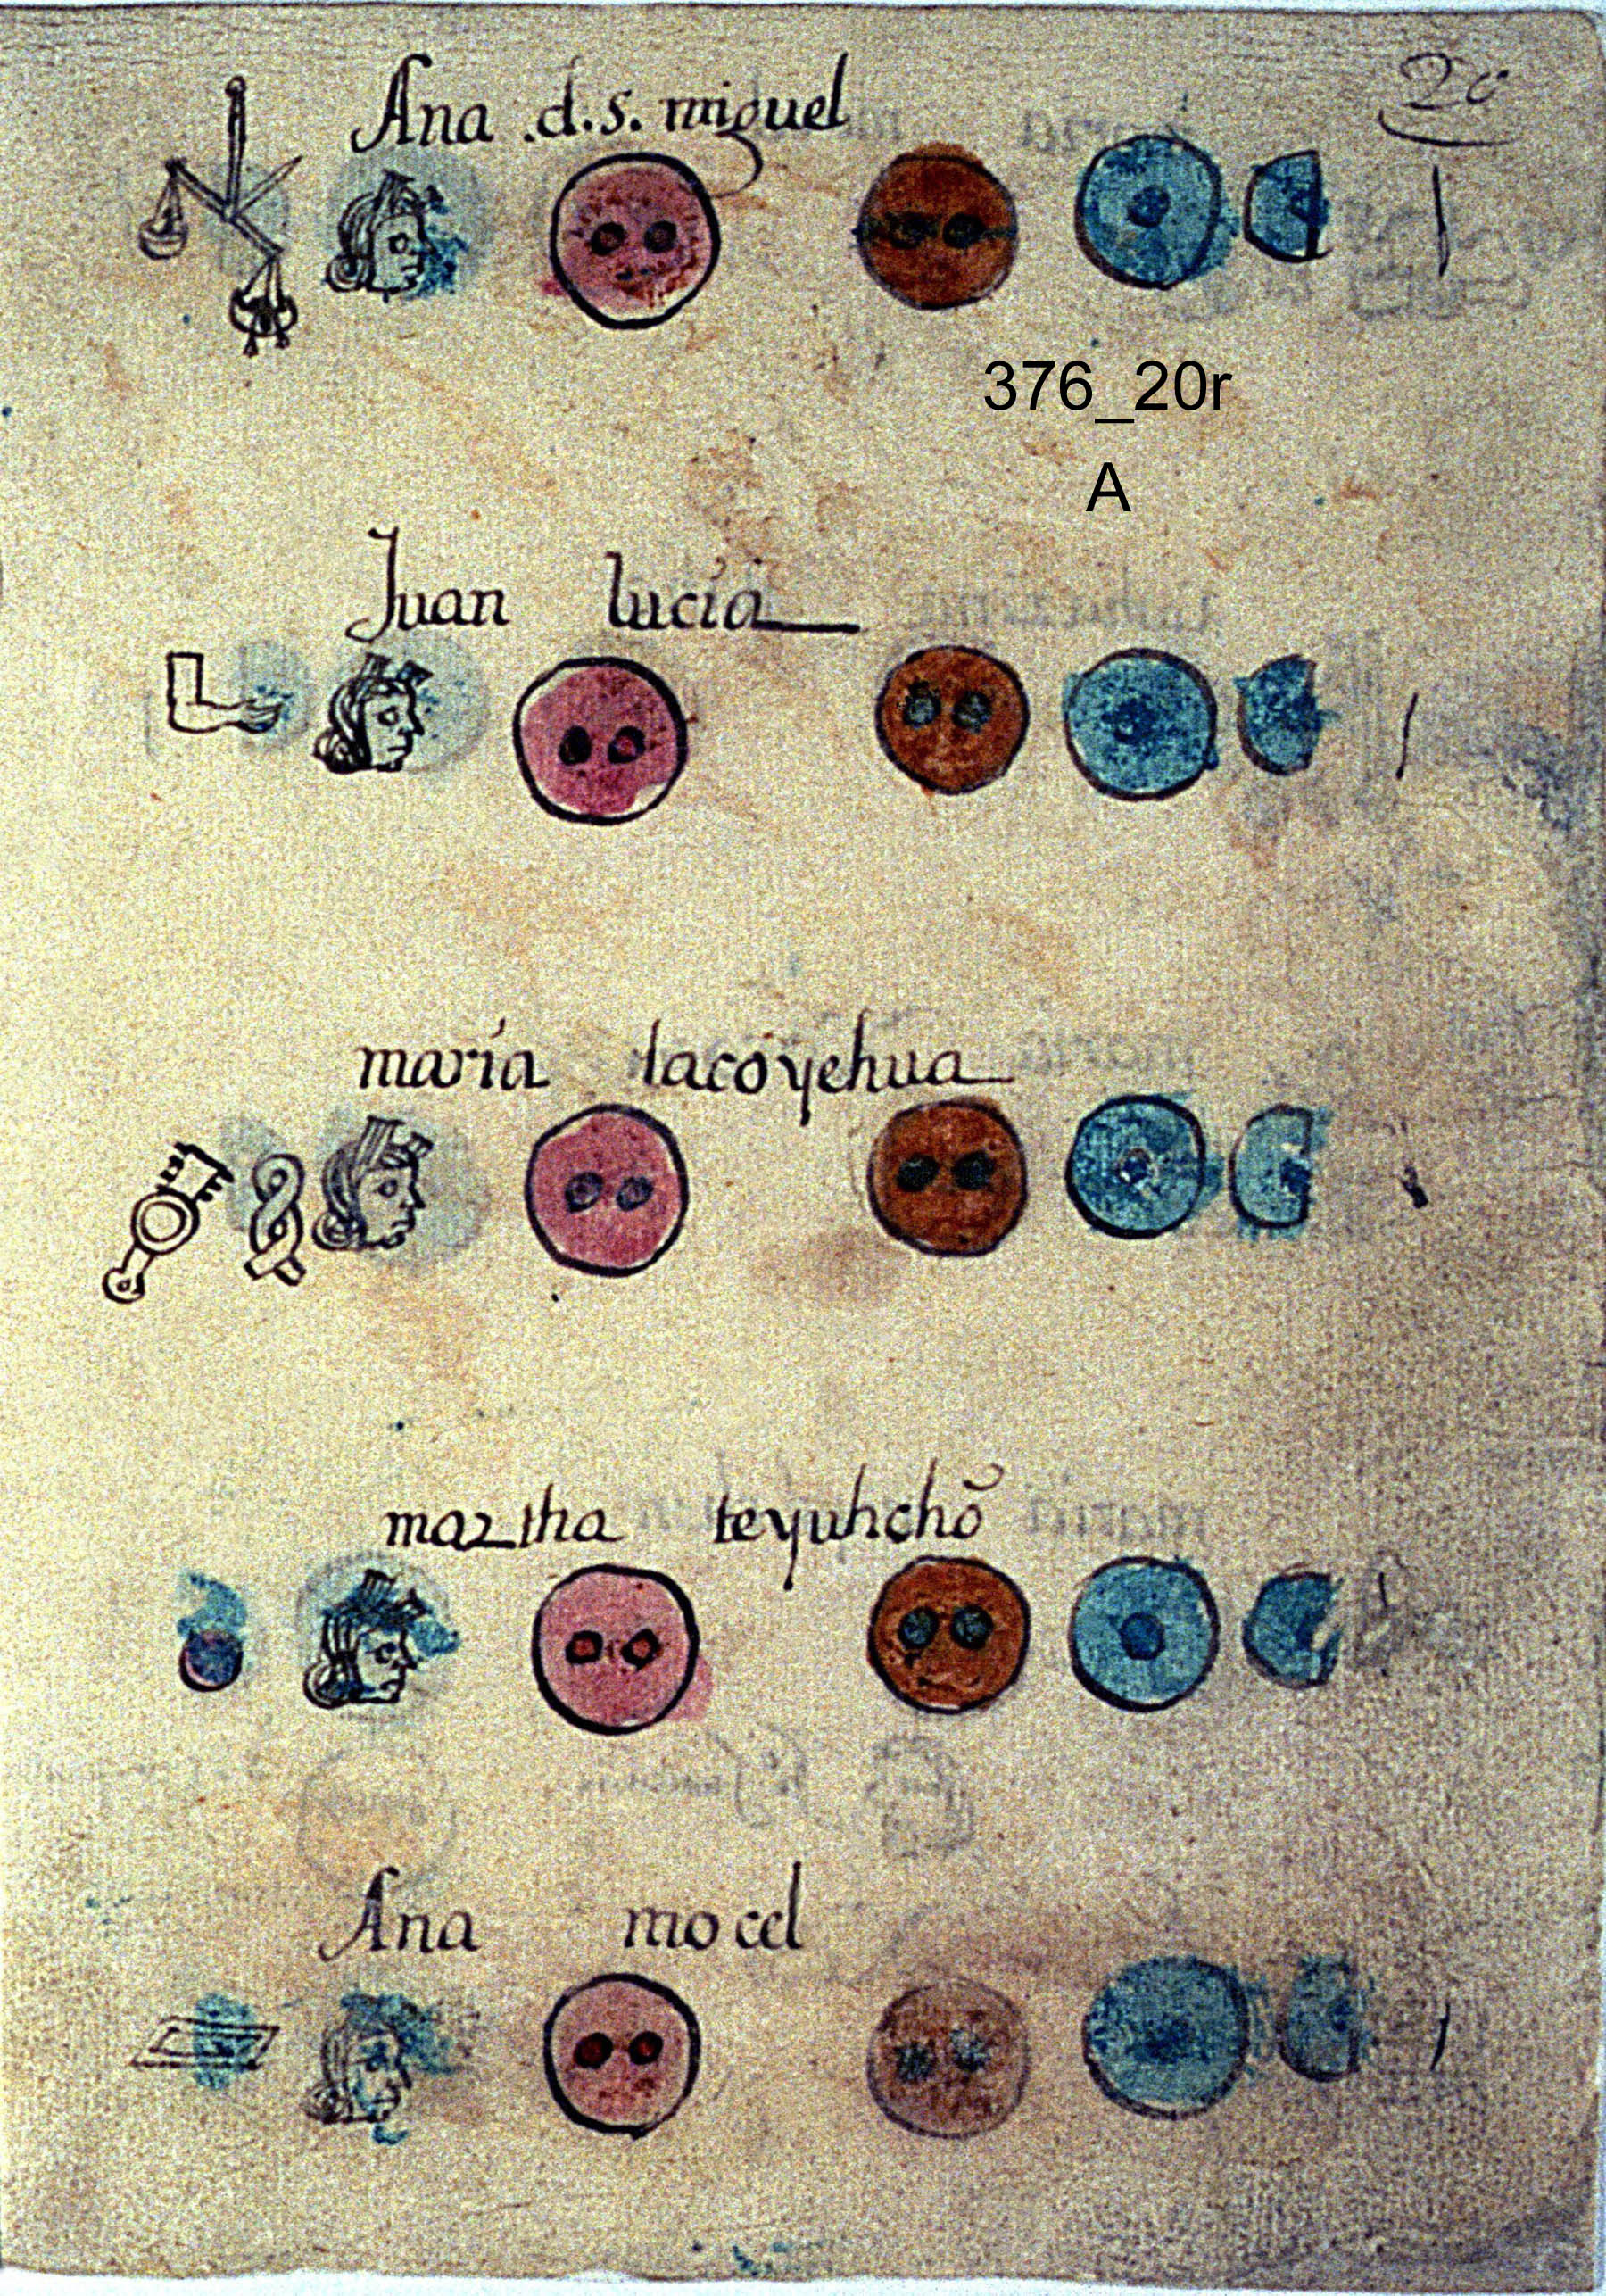 20
Ana .d.s. miguel
376_20r
A
Juan lucia
maria tacoyehua
martha teyuhchõ
Ana mo cel